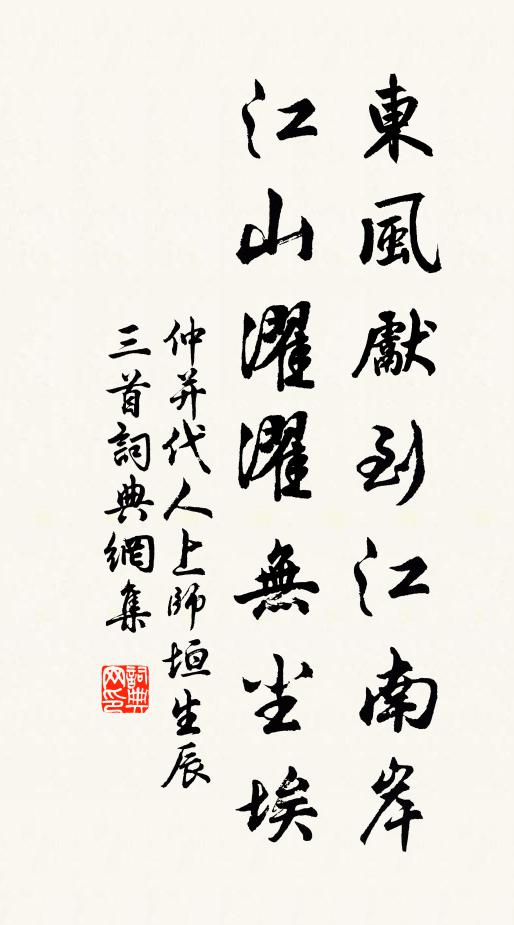 東風獻到江南岸
江山濯濯無尘埃
仲并代人上師垣生辰
三首詞典網集
詞典
网印